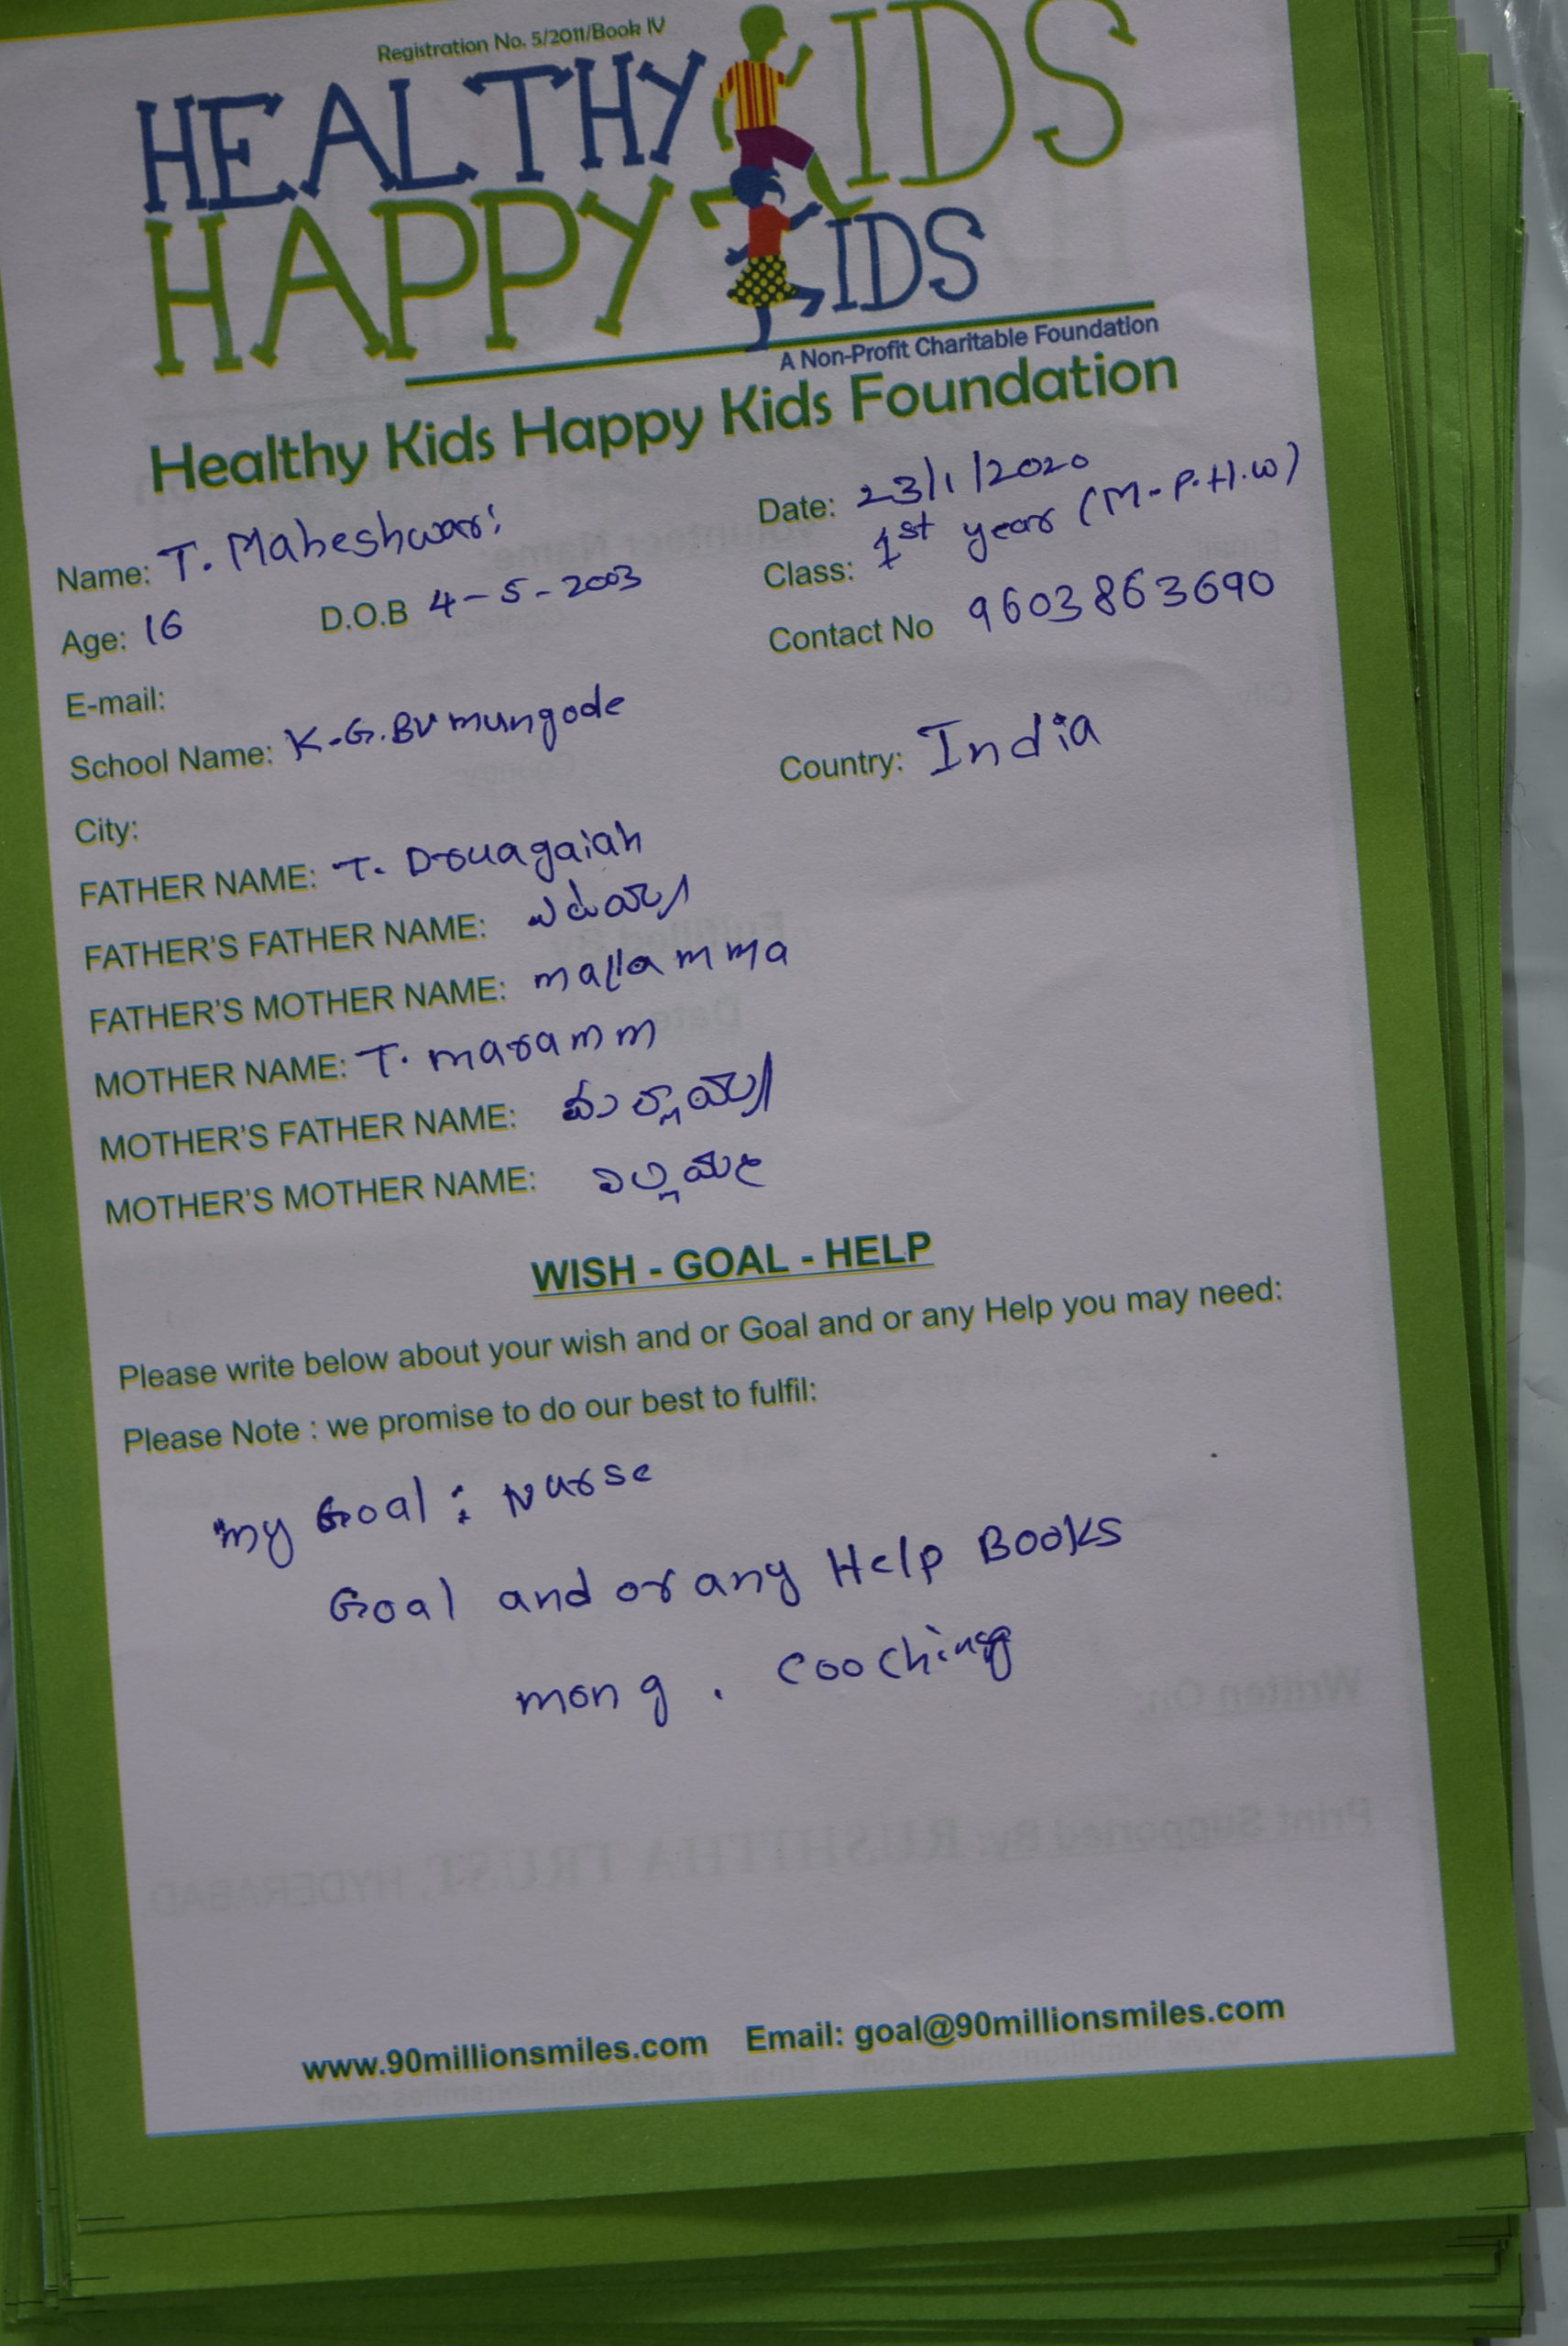 Registration No. 5/2011/Book IV
HEALTHY KIDS
HAPPY KIDS
A Non-Profit Charitable Foundation
Healthy Kids Happy Kids Foundation
Name: T. Maheshwari Date: 23/1/2020
Age: 16 D.O.B 4-5-2003 Class: 1st year (M.P.H.W)
E-mail: Contact No 9603863690
School Name: K.G.BV mungode
City: Country: India
FATHER NAME: T.
FATHER'S FATHER NAME:
FATHER'S MOTHER NAME: mallamma
MOTHER NAME: T. maramm
MOTHER'S FATHER NAME:
MOTHER'S MOTHER NAME:
WISH - GOAL - HELP
Please write below about your wish and or Goal and or any Help you may need:
Please Note : we promise to do our best to fulfil:
my Goal : Nurse
Goal and or any Help Books
mong . Cooching
www.90millionsmiles.com Email: goal@90millionsmiles.com